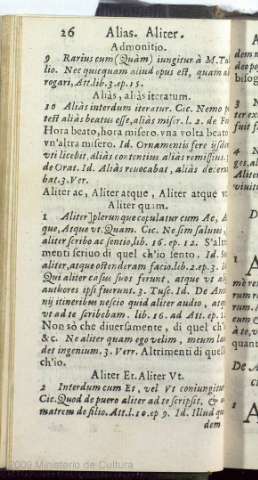 26 Alias. Aliter.
Admonitio.
9 Rarius cum (Quàm) iungitur à M. Tu
lio. Nec quicquam aliud opus est, quam a
rogari, Att. lib. 3. ep. 15.
Aliàs, aliàs iteratum.
10 Aliàs interdum iteratur. Cic. Nemo p
test aliàs beatus esse, aliàs miser. l. 2. de F
Hora beato, hora misero. vna volta beat
vn'altra misero. Id. Ornamentis fere iisde
vti licebit, aliàs contentius aliàs remissius.
de Orat. Id. Aliàs reuocabat, aliàs decert
bat. 3. Ver.
Aliter ac, Aliter atque, Aliter atque v
Aliter quàm.
1 Aliter] plerunque copulatur cum Ac, A
que, Atque vt. Quam. Cic. Ne sim saluus,
aliter scribo ac sentio. lib. 16. ep. 12. S'al
menti scriuo di quel ch'io sento. Id. S
aliter, atque ostenderam facio. lib. 2. ep. 3.
Qui aliter casus suos ferunt, atque vt a
authores ipsi fuerunt. 3. Tusc. Id. De An
nij itineribus nescio quid aliter audio, atq
vt ad te scribebam. lib. 16. ad Att. ep. 1
Non sò che diuersamente, di quel ch'
&c. Ne aliter quam ego velim, meum la
det ingenium. 3. Verr. Altrimenti di quel
ch'io.
Aliter Et. Aliter Vt.
2 Interdum cum Et, vel Vt coniungitu
Cic. Quod de puero aliter ad te scripsit, &
matrem de filio. Att. l. 10. ep 9. Id. Illud q
dem
©2009 Ministerio de Cultura